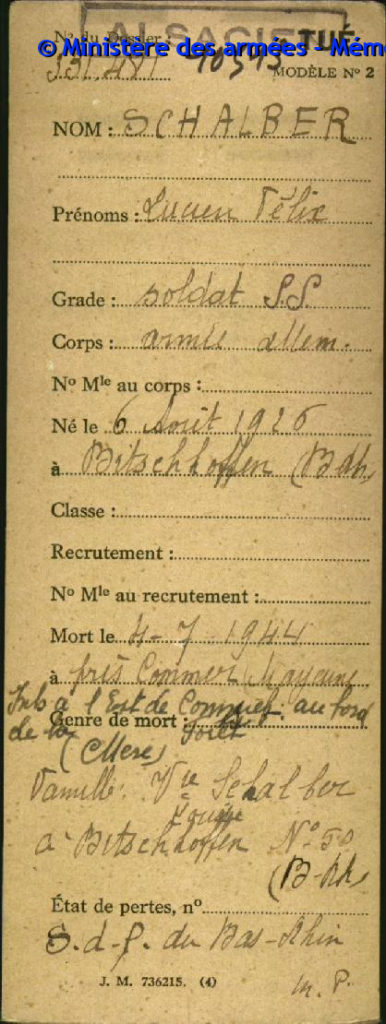 ALSACIEN
TUÉ
© Ministère des armées - Mém
Nº du Dossier :
131.481 70373
MODÈLE Nº 2
NOM : SCHALBER
Prénoms : Lucien Félix
Grade : soldat S.S.
Corps : armée allem.
Nº Mle au corps :
Né le 6 Août 1926
à Bitschhoffen (B.Rh.
Classe :
Recrutement :
Nº Mle au recrutement :
Mort le 4-7-1944
à près Commer Mayenne
Inh à l'Est de Commer au bord
Genre de mort :
de la forêt
(Mere)
Famille: Vve Schalber
à Bitschhoffen Nº 50
(B-Rh)
État de pertes, nº
S.d-P. du Bas-Rhin
J. M. 736215. (4)
m. P.